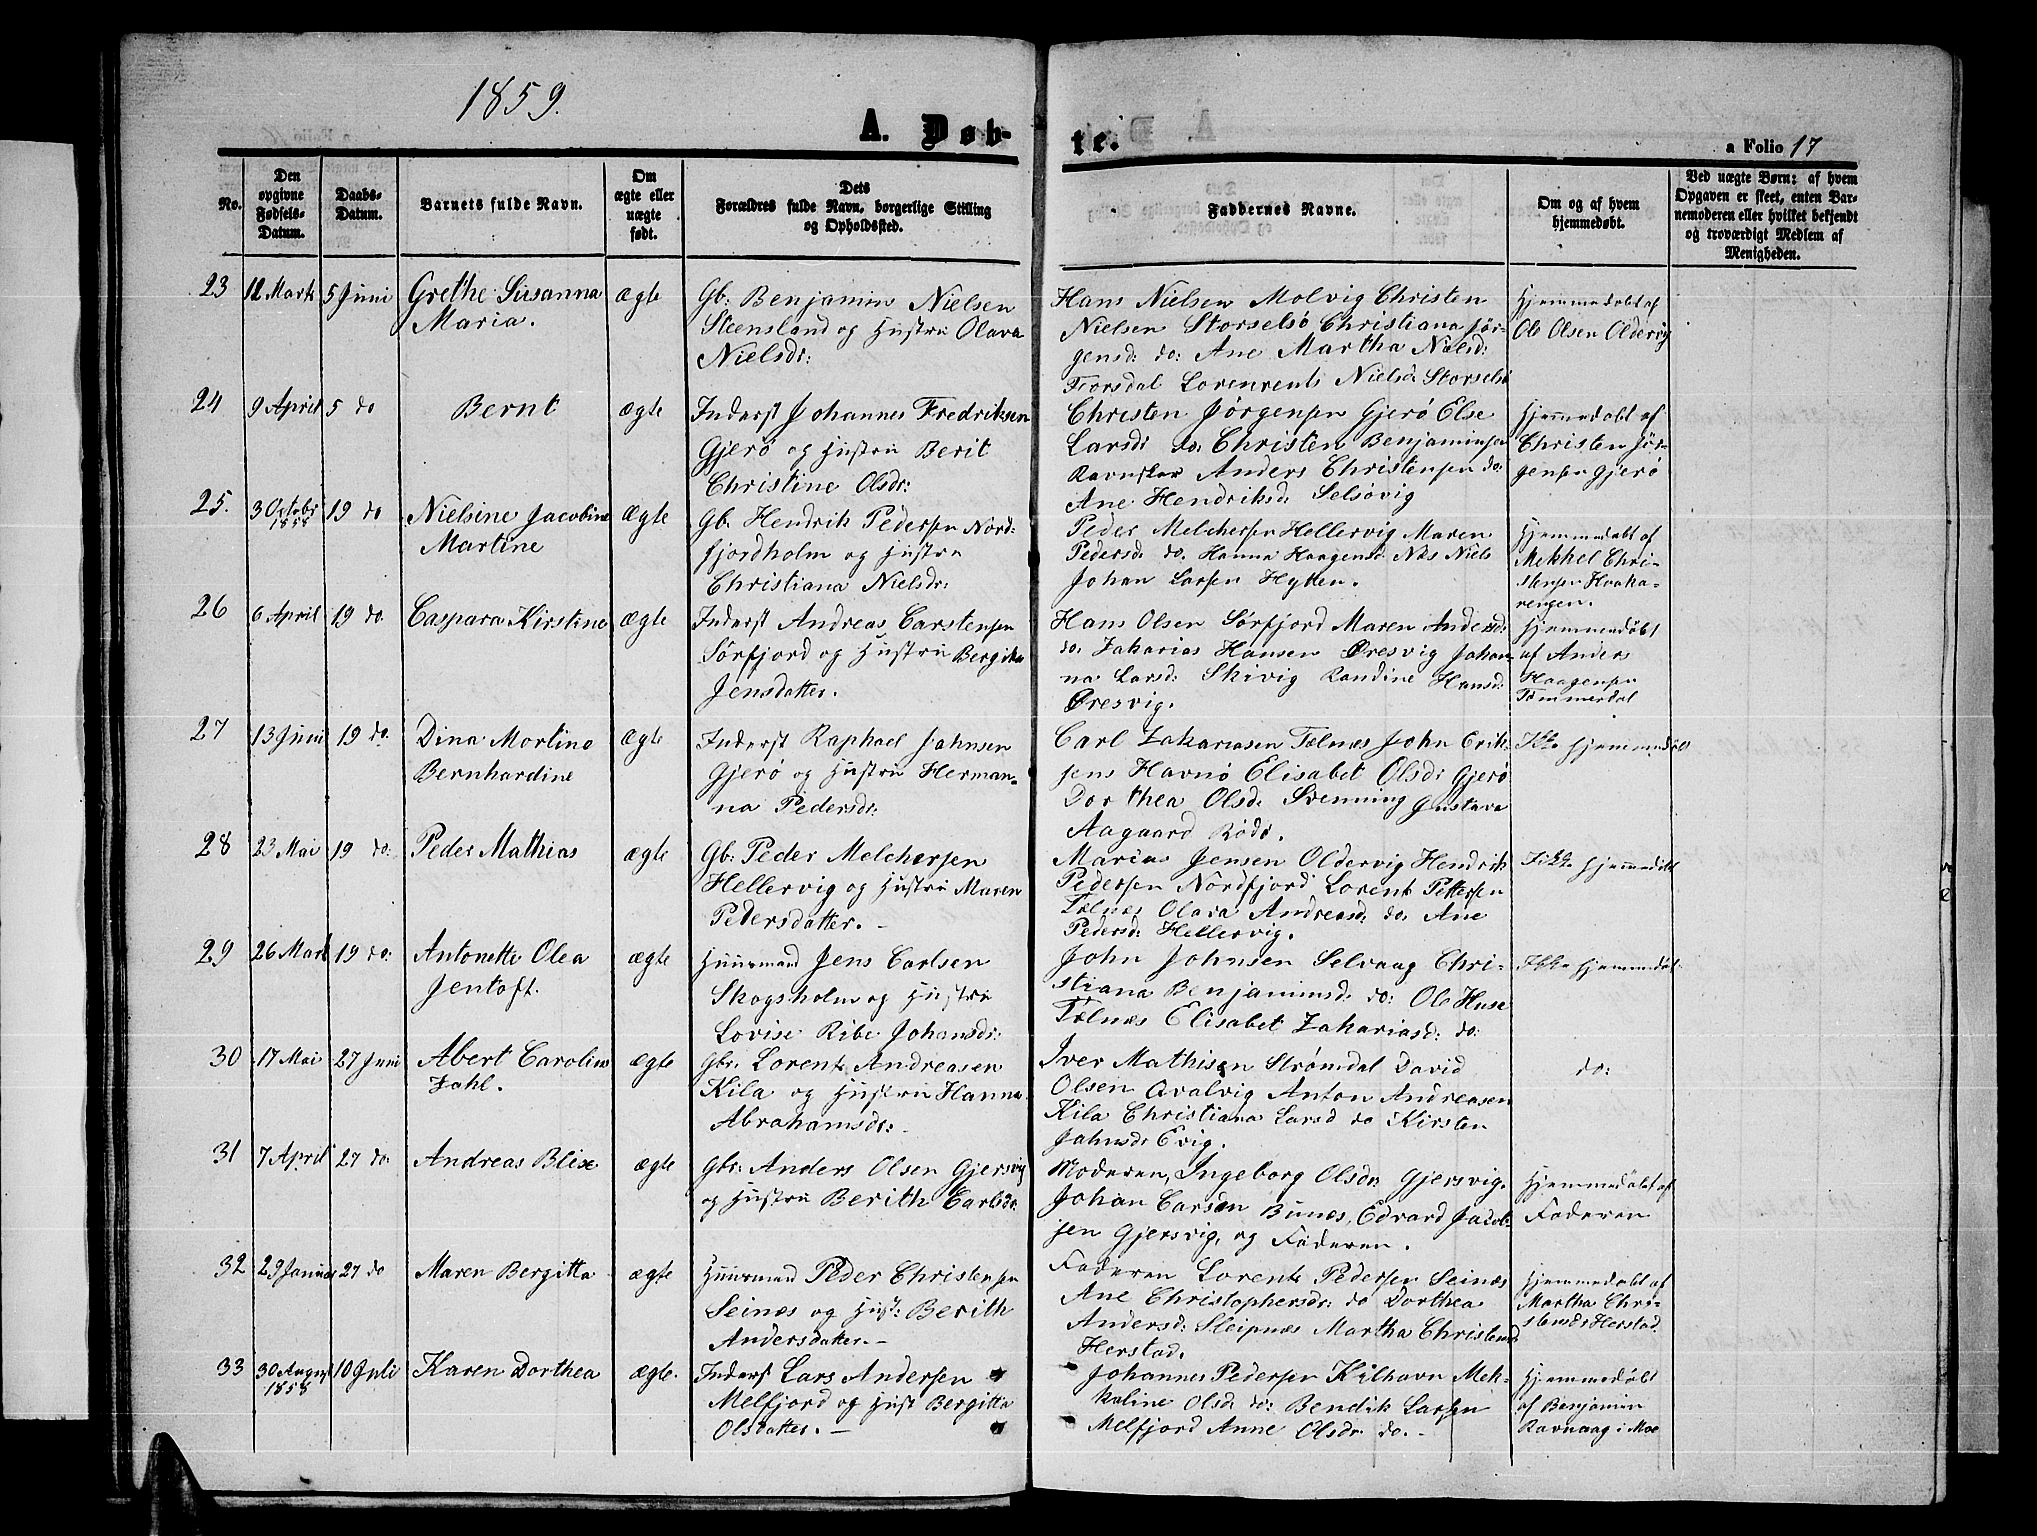 1859.
A. Døb-
te.
a Folio 17
No.
Den
opgivne
Fødsels-
Datum.
Daabs-
Datum.
Barnets fulde Navn.
Om
ægte eller
uægte
født.
Dets
Forældres fulde Navn, borgerlige Stilling
og Opholdssted.
Faddernes Navne.
Om og af hvem
hjemmedøbt.
Ved uægte Børn: af hvem
Opgaven er skeet, enten Bar-
nemoderen eller hvilket bekjendt
og troværdigt Medlem af
Menigheden.
23 12 Marts 5 Juni Grethe Susanna
Maria.
ægte
Gb: Benjamin Nielsen
Steensland og Hustru Olava
Nielsdr:
Hans Nielsen Molvig Christen
Nielsen Storselsö Christiana Jör-
gensd: do: Ane Martha Nielsd:
Forsdal Lorenrents Nielsd: Storselsö
Hjemmedøbt af
Ole Olsen Oldervig
24 9 April 5 do Bernt ægte
Inderst Johannes Fredriksen
Gjerö og Hustru Berit
Christine Olsdr:
Christen Jørgensen Gjerö Else
Larsdr do: Christen Benjaminsen
Anders Christensen do:
Ane Hendriksd: Selsövig
Hjemmedøbt af
Christen Jör-
gensen Gjerö
25. 3 Octobr
1858 19 do Nielsine Jacobine
Martine
Ægte
Gb: Hendrik Pedersen Nord-
fjordholm og Hustru
Christiana Nielsdr:
Peder Melchersen Hellervig Maren
Pedersd: do: Hanna Haagensd: Næs Niels
Johan Larsen Hytten.
Hjemmedøbt af
Mekkel Chri-
stensen Hvaka-
rengen.
26 6 April 19 do. Caspara Kirstine ægte
Inderst Andreas Carstensen
Sörfjord og Hustru Bergitha
Jensdatter.
Hans Olsen Sörfjord Maren Andersd:
do: Zakarias Hansen Øresvig Johan-
na Larsd: Skivig Randine Hansd:
Øresvig.
Hjemmedöbt
af Anders
Haagensen
Tømmerdal
27 13 Juni 19 do. Dina Martine
Bernhardine
ægte
Inderst Raphael Jahnsen
Gjerö og Hustru Herman-
na Pedersdr:
Carl Zakariasen Tælnæs John Erik-
sens Havnö Elisabet Olsdr Gjerö
Dorthea Olsd: Svenning Gustava
Aagaard Rödö.
Ikke Hjemmedöbt
28 23 Mai 19 do: Peder Mathias ægte
Gb: Peder Melchersen
Hellervig og Hustru Maren
Pedersdatter. -
Marius Jensen Oldervig Hendrik
Pedersen Nordfjord Lorents Pettersen
Tælnæs Olava Andreasd: do. Ane
Pedersd: Hellervig.
Ikke Hjemmedöbt
29 26 Marts 19 do: Antonette Olea
Jentoft.
ægte
Huusmand Jens Carlsen
Skogsholm og Hustru
Lovise Ribe Johansdr:
John Johnsen Selvaag Chri-
stiana Benjaminsd: do: Ole Huse
Tælnæs Elisabet Zakariasd: do:
Ikke Hjemmedöbt
30 17 Mai 27 Juni Abert Carolius
Zahl.
ægte
Gbr. Lorents Andreasen
Kila og Hustru Hanna
Abrahamsdr: -
Iver Mathisen Strømdal David
Olsen Qvalvig Anton Andreasen
Kila Christiana Larsd do Kirsten
Jahnsdr Evig.
do:
31 7 April 27 do. Andreas Blix ægte
Gbr: Anders Olsen Gjersvig
og Hustru Berith Carlsdr.
Moderen, Ingeborg Olsdr Gjersvig.
Johan Carsen Bunæs, Edvard Jacob-
sen Gjersvig, og Faderen.
Hjemmedöbt af
Faderen
32 29 Januar 27 do Maren Bergitta ægte
Huusmand Peder Christensen
Seinæs og Hust: Berith
Andersdatter. -
Faderen Lorents Pedersen Seinæs
Ane Christophersdr: do Dorthea
Andersd: Sleipnæs Martha Christensd
Herstad.
Hjemmedøbt af
Martha Chri-
stensdr Herstad.
33 30 August
1858 10 Juli Karen Dorthea ægte.
Inderst Lars Andersen
Melfjord og Hust Bergitta
Olsdatter. -
Johannes Pedersen Kilhavn Mek-
kaline Olsd do: Bendik Larsen
Melfjord Anne Olsdr do. -
Hjemmedöbt
af Benjamin
Ravnaag i Moe